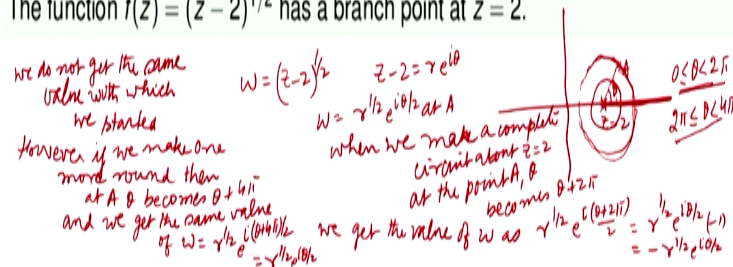 The function f(z) = (z – 2)^1/2 has a branch point at z = 2.
we do not get the same
value with which
we started
However if we make one
more round then
at A θ becomes θ + 4π
and we get the same value
of w = r^1/2 e^i(θ+4π)/2
= r^1/2 e^iθ/2
w = (z-2)^1/2
z-2 = re^iθ
w = r^1/2 e^iθ/2 at A
when we make a complete
circuit about z=2
at the point A, θ
becomes θ+2π
we get the value of w as r^1/2 e^i(θ+2π)/2 = r^1/2 e^iθ/2 (-1)
= -r^1/2 e^iθ/2
A
z=2
0≤θ<2π
2π≤θ<4π